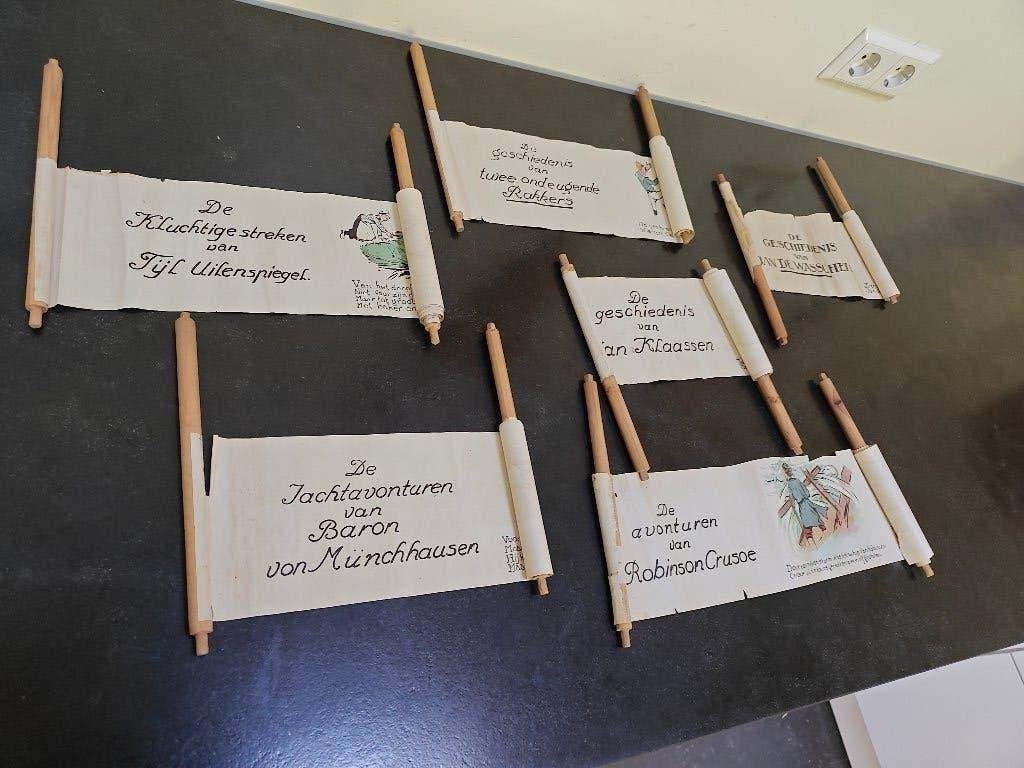 De
Kluchtige streken
van
Tijl Uilenspiegel.
De
geschiedenis
van
twee ondeugende
Rakkers
DE
GESCHIEDENIS
VAN
JAN DE WASSCHER
De
geschiedenis
van
an Klaassen
De
Jachtavonturen
van
Baron
von Münchhausen
De
avonturen
van
Robinson Crusoe